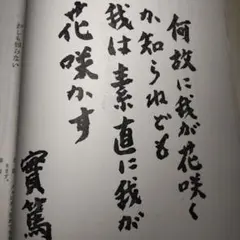 何故に我が花咲く
か知らねども
我は素直に我が
花咲かす
實篤